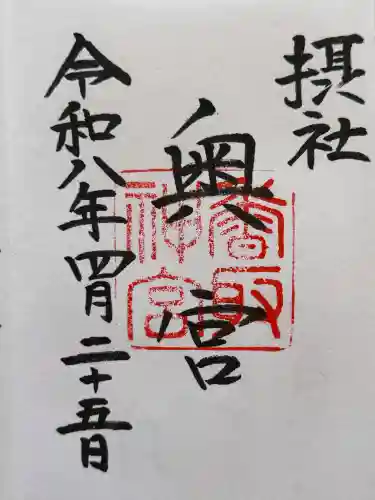 摂社
奥宮
香取
神宮
令和八年四月二十五日